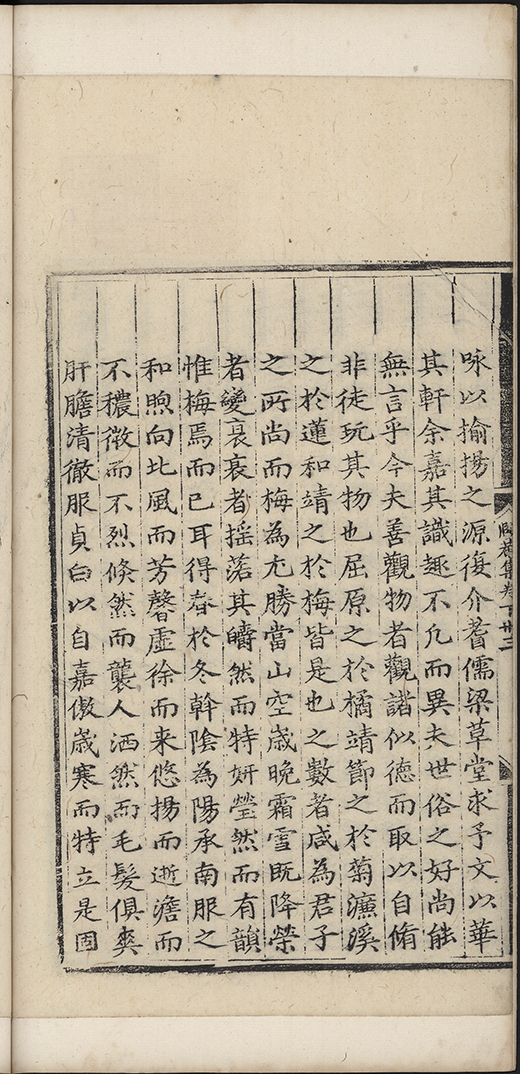 咏以揄揚之源復介耆儒梁草堂求予文以華
其軒余嘉其識趣不凡而異夫世俗之好尚能
無言乎今夫善觀物者觀諸似德而取以自脩
非徒玩其物也屈原之於橘靖節之於菊濂溪
之於蓮和靖之於梅皆是也之數者咸為君子
之所尚而梅為尤勝當山空歲晚霜雪既降榮
者變衰衰者揺落其皭然而特妍瑩然而有韻
惟梅焉而已耳得春於冬斡陰為陽承南服之
和煦向北風而芳馨虚徐而来悠揚而逝澹而
不穠微而不烈倏然而襲人洒然而毛髪俱爽
肝膽清徹服貞白以自嘉傲歲寒而特立是固
集卷下 廿三